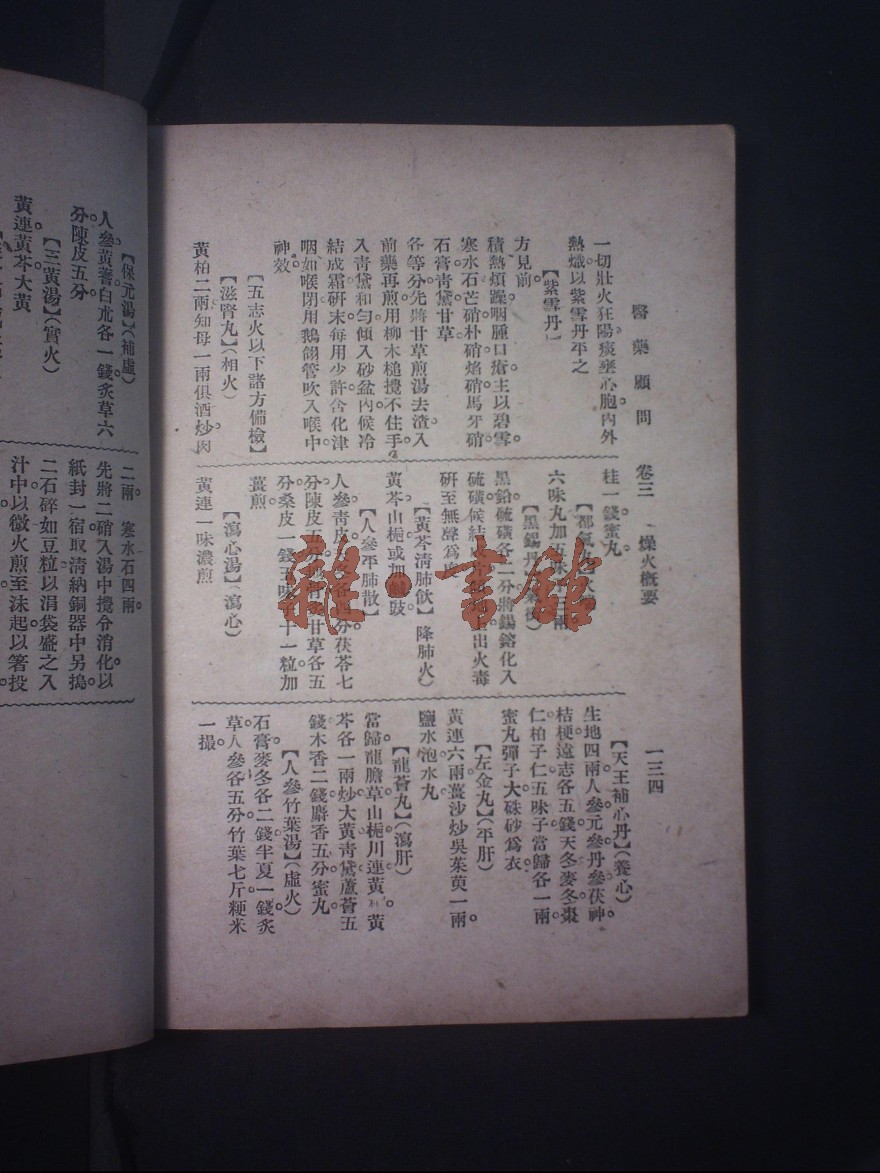 醫藥顧問　卷三　燥火概要　一三四
一切壯火狂陽痰壅心胞內外
熱熾以紫雪丹平之
【紫雪丹】
方見前。
積熱煩躁咽腫口瘡主以碧雪
寒水石芒硝朴硝焰硝馬牙硝
石膏青黛甘草
各等分先將甘草煎湯去渣入
前藥再煎用柳木槌攪不住手
入青黛和勻傾入砂盆內候冷
結成霜研末每用少許含化津
咽如喉閉用鵝翎管吹入喉中
神效。
【五志火以下諸方備檢】
【滋腎丸】（相火）
黃柏二兩知母一兩俱酒炒肉
桂一錢蜜丸
【都氣丸】
六味丸加五味三兩
【黑錫丹】
黑鉛硫磺各二分將錫鎔化入
硫磺候結出火毒
研至無聲為
【黃芩清肺飲】（降肺火）
黃芩山梔或加鹽豉
【人參平肺散】
人參青皮四分茯苓七
分陳皮五分甘草各五
分桑皮一錢五味子十一粒加
薑煎
【瀉心湯】（瀉心）
黃連一味濃煎
【天王補心丹】（養心）
生地四兩人參元參丹參茯神
桔梗遠志各五錢天冬麥冬棗
仁柏子仁五味子當歸各一兩
蜜丸彈子大硃砂為衣
【左金丸】（平肝）
黃連六兩薑汐炒吳茱萸一兩
鹽水泡水丸
【龍薈丸】（瀉肝）
當歸龍膽草山梔川連黃黃
芩各一兩炒大黃青黛蘆薈五
錢木香二錢麝香五分蜜丸
【人參竹葉湯】（虛火）
石膏麥冬各二錢半夏一錢炙
草人參各五分竹葉七斤粳米
一撮。
【保元湯】（補虛）
人參黃蓍白朮各一錢炙草六
分陳皮五分
【三黃湯】（實火）
黃連黃芩大黃
二兩　寒水石四兩
先將二硝入湯中攪令消化以
紙封一宿取清納銅器中另搗
二石碎如豆粒以涓袋盛之入
汁中以微火煎至沫起以箸投
雜·書館